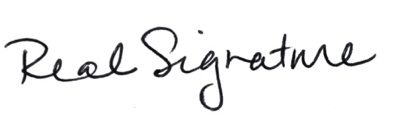 Real Signature